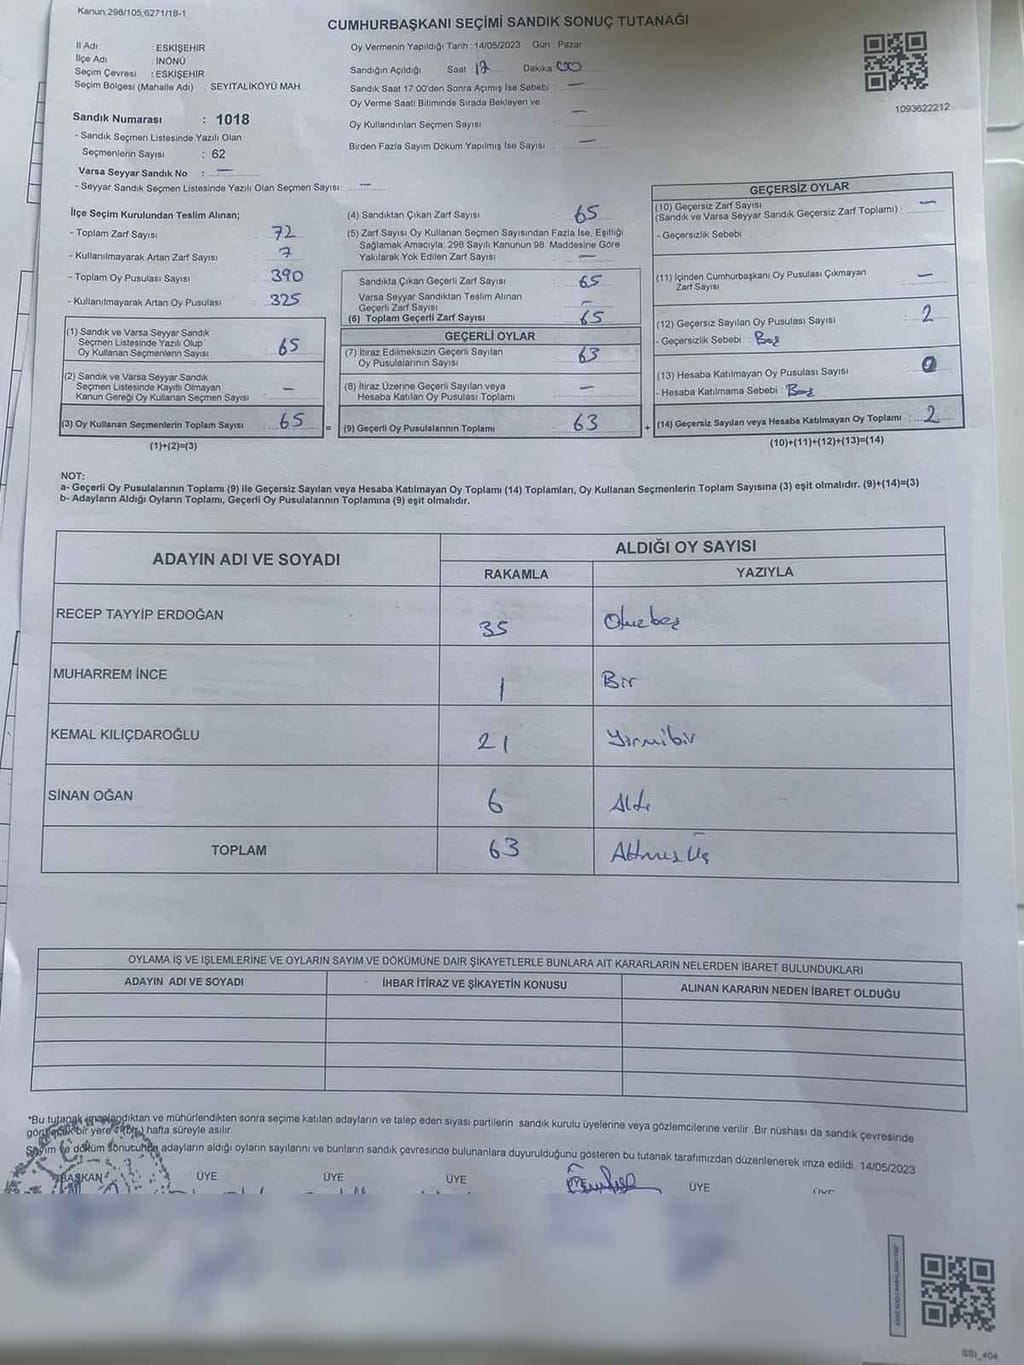 Kanun, 298/105,6271/18-1
CUMHURBAŞKANI SEÇİMİ SANDIK SONUÇ TUTANAĞI
İl Adı : ESKİŞEHİR
İlçe Adı : İNÖNÜ
Seçim Çevresi : ESKİŞEHİR
Seçim Bölgesi (Mahalle Adı) : SEYİTALİKÖYÜ MAH
Sandık Numarası : 1018
- Sandık Seçmen Listesinde Yazılı Olan
Seçmenlerin Sayısı : 62
Varsa Seyyar Sandık No : —
- Seyyar Sandık Seçmen Listesinde Yazılı Olan Seçmen Sayısı: —
Oy Vermenin Yapıldığı Tarih : 14/05/2023 Gün : Pazar
Sandığın Açıldığı Saat 17 Dakika 00
Sandık Saat 17:00'den Sonra Açımış İse Sebebi —
Oy Verme Saati Bitiminde Sırada Bekleyen ve
Oy Kullandırılan Seçmen Sayısı : —
Birden Fazla Sayım Döküm Yapılmış İse Sayısı : —
1093622212
İlçe Seçim Kurulundan Teslim Alınan;
- Toplam Zarf Sayısı : 72
- Kullanılmayarak Artan Zarf Sayısı : 7
- Toplam Oy Pusulası Sayısı : 390
- Kullanılmayarak Artan Oy Pusulası : 325
(1) Sandık ve Varsa Seyyar Sandık
Seçmen Listesinde Yazılı Olup
Oy Kullanan Seçmenlerin Sayısı : 65
(2) Sandık ve Varsa Seyyar Sandık
Seçmen Listesinde Kayıtlı Olmayan
Kanun Gereği Oy Kullanan Seçmen Sayısı : —
(3) Oy Kullanan Seçmenlerin Toplam Sayısı : 65
(1)+(2)=(3)
(4) Sandıktan Çıkan Zarf Sayısı : 65
(5) Zarf Sayısı Oy Kullanan Seçmen Sayısından Fazla İse, Eşitliği
Sağlamak Amacıyla; 298 Sayılı Kanunun 98. Maddesine Göre
Yakılarak Yok Edilen Zarf Sayısı : —
Sandıkta Çıkan Geçerli Zarf Sayısı : 65
Varsa Seyyar Sandıktan Teslim Alınan
Geçerli Zarf Sayısı : —
(6) Toplam Geçerli Zarf Sayısı : 65
GEÇERLİ OYLAR
(7) İtiraz Edilmeksizin Geçerli Sayılan
Oy Pusulalarının Sayısı : 63
(8) İtiraz Üzerine Geçerli Sayılan veya
Hesaba Katılan Oy Pusulası Toplamı : —
= (9) Geçerli Oy Pusulalarının Toplamı : 63
GEÇERSİZ OYLAR
(10) Geçersiz Zarf Sayısı
(Sandık ve Varsa Seyyar Sandık Geçersiz Zarf Toplamı) : —
- Geçersizlik Sebebi :
(11) İçinden Cumhurbaşkanı Oy Pusulası Çıkmayan
Zarf Sayısı : —
(12) Geçersiz Sayılan Oy Pusulası Sayısı : 2
- Geçersizlik Sebebi : Boş
(13) Hesaba Katılmayan Oy Pusulası Sayısı : 0
- Hesaba Katılmama Sebebi : Boş
+ (14) Geçersiz Sayılan veya Hesaba Katılmayan Oy Toplamı : 2
(10)+(11)+(12)+(13)=(14)
NOT:
a- Geçerli Oy Pusulalarının Toplamı (9) ile Geçersiz Sayılan veya Hesaba Katılmayan Oy Toplamı (14) Toplamları, Oy Kullanan Seçmenlerin Toplam Sayısına (3) eşit olmalıdır. (9)+(14)=(3)
b- Adayların Aldığı Oyların Toplamı, Geçerli Oy Pusulalarının Toplamına (9) eşit olmalıdır.
ADAYIN ADI VE SOYADI
ALDIĞI OY SAYISI
RAKAMLA YAZIYLA
RECEP TAYYİP ERDOĞAN 35 Otuzbeş
MUHARREM İNCE 1 Bir
KEMAL KILIÇDAROĞLU 21 Yirmibir
SİNAN OĞAN 6 Altı
TOPLAM 63 Altmış Üç
OYLAMA İŞ VE İŞLEMLERİNE VE OYLARIN SAYIM VE DÖKÜMÜNE DAİR ŞİKAYETLERLE BUNLARA AİT KARARLARIN NELERDEN İBARET BULUNDUKLARI
ADAYIN ADI VE SOYADI İHBAR İTİRAZ VE ŞİKAYETİN KONUSU ALINAN KARARIN NEDEN İBARET OLDUĞU
*Bu tutanak imzalandıktan ve mühürlendikten sonra seçime katılan adayların ve talep eden siyasi partilerin sandık kurulu üyelerine veya gözlemcilerine verilir. Bir nüshası da sandık çevresinde
görülecek bir yere 1 (bir) hafta süreyle asılır.
Sayım ve döküm sonucunda adayların aldığı oyların sayılarını ve bunların sandık çevresinde bulunanlara duyurulduğunu gösteren bu tutanak tarafımızdan düzenlenerek imza edildi. 14/05/2023
BAŞKAN ÜYE ÜYE ÜYE ÜYE ÜYE ÜYE
SSI_404